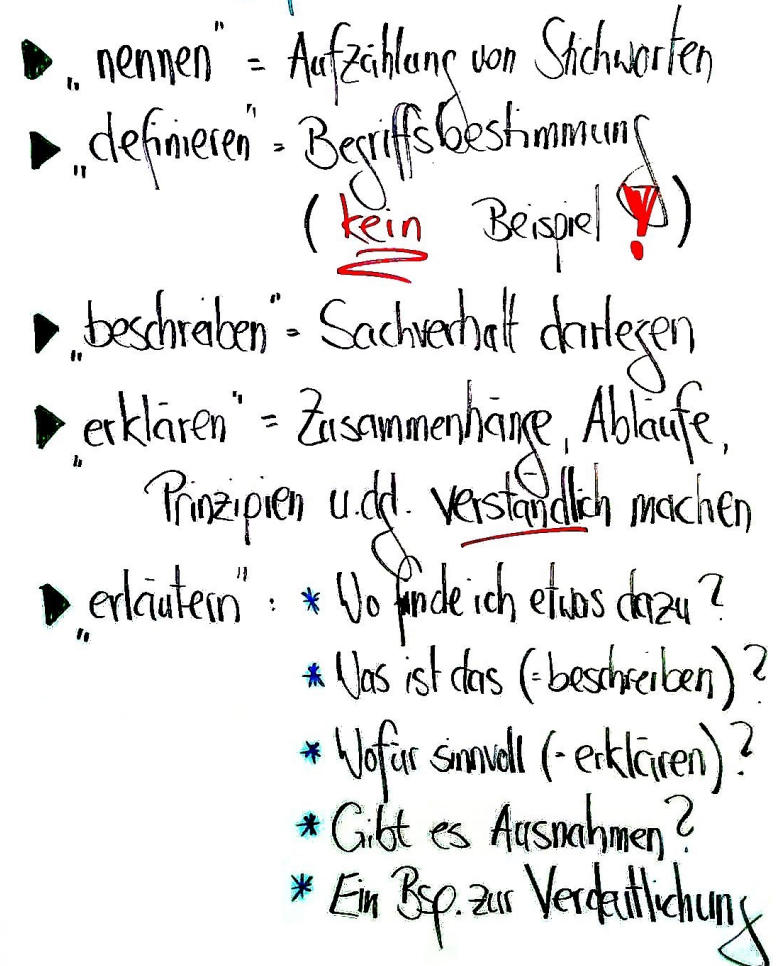 ▶ „nennen" = Aufzählung von Stichworten
▶ „definieren" = Begriffsbestimmung
(kein Beispiel!)
▶ „beschreiben" = Sachverhalt darlegen
▶ „erklären" = Zusammenhänge, Abläufe,
Prinzipien u.dgl. verständlich machen
▶ „erläutern": * Wo finde ich etwas dazu?
* Was ist das (=beschreiben)?
* Wofür sinnvoll (=erklären)?
* Gibt es Ausnahmen?
* Ein Bsp. zur Verdeutlichung